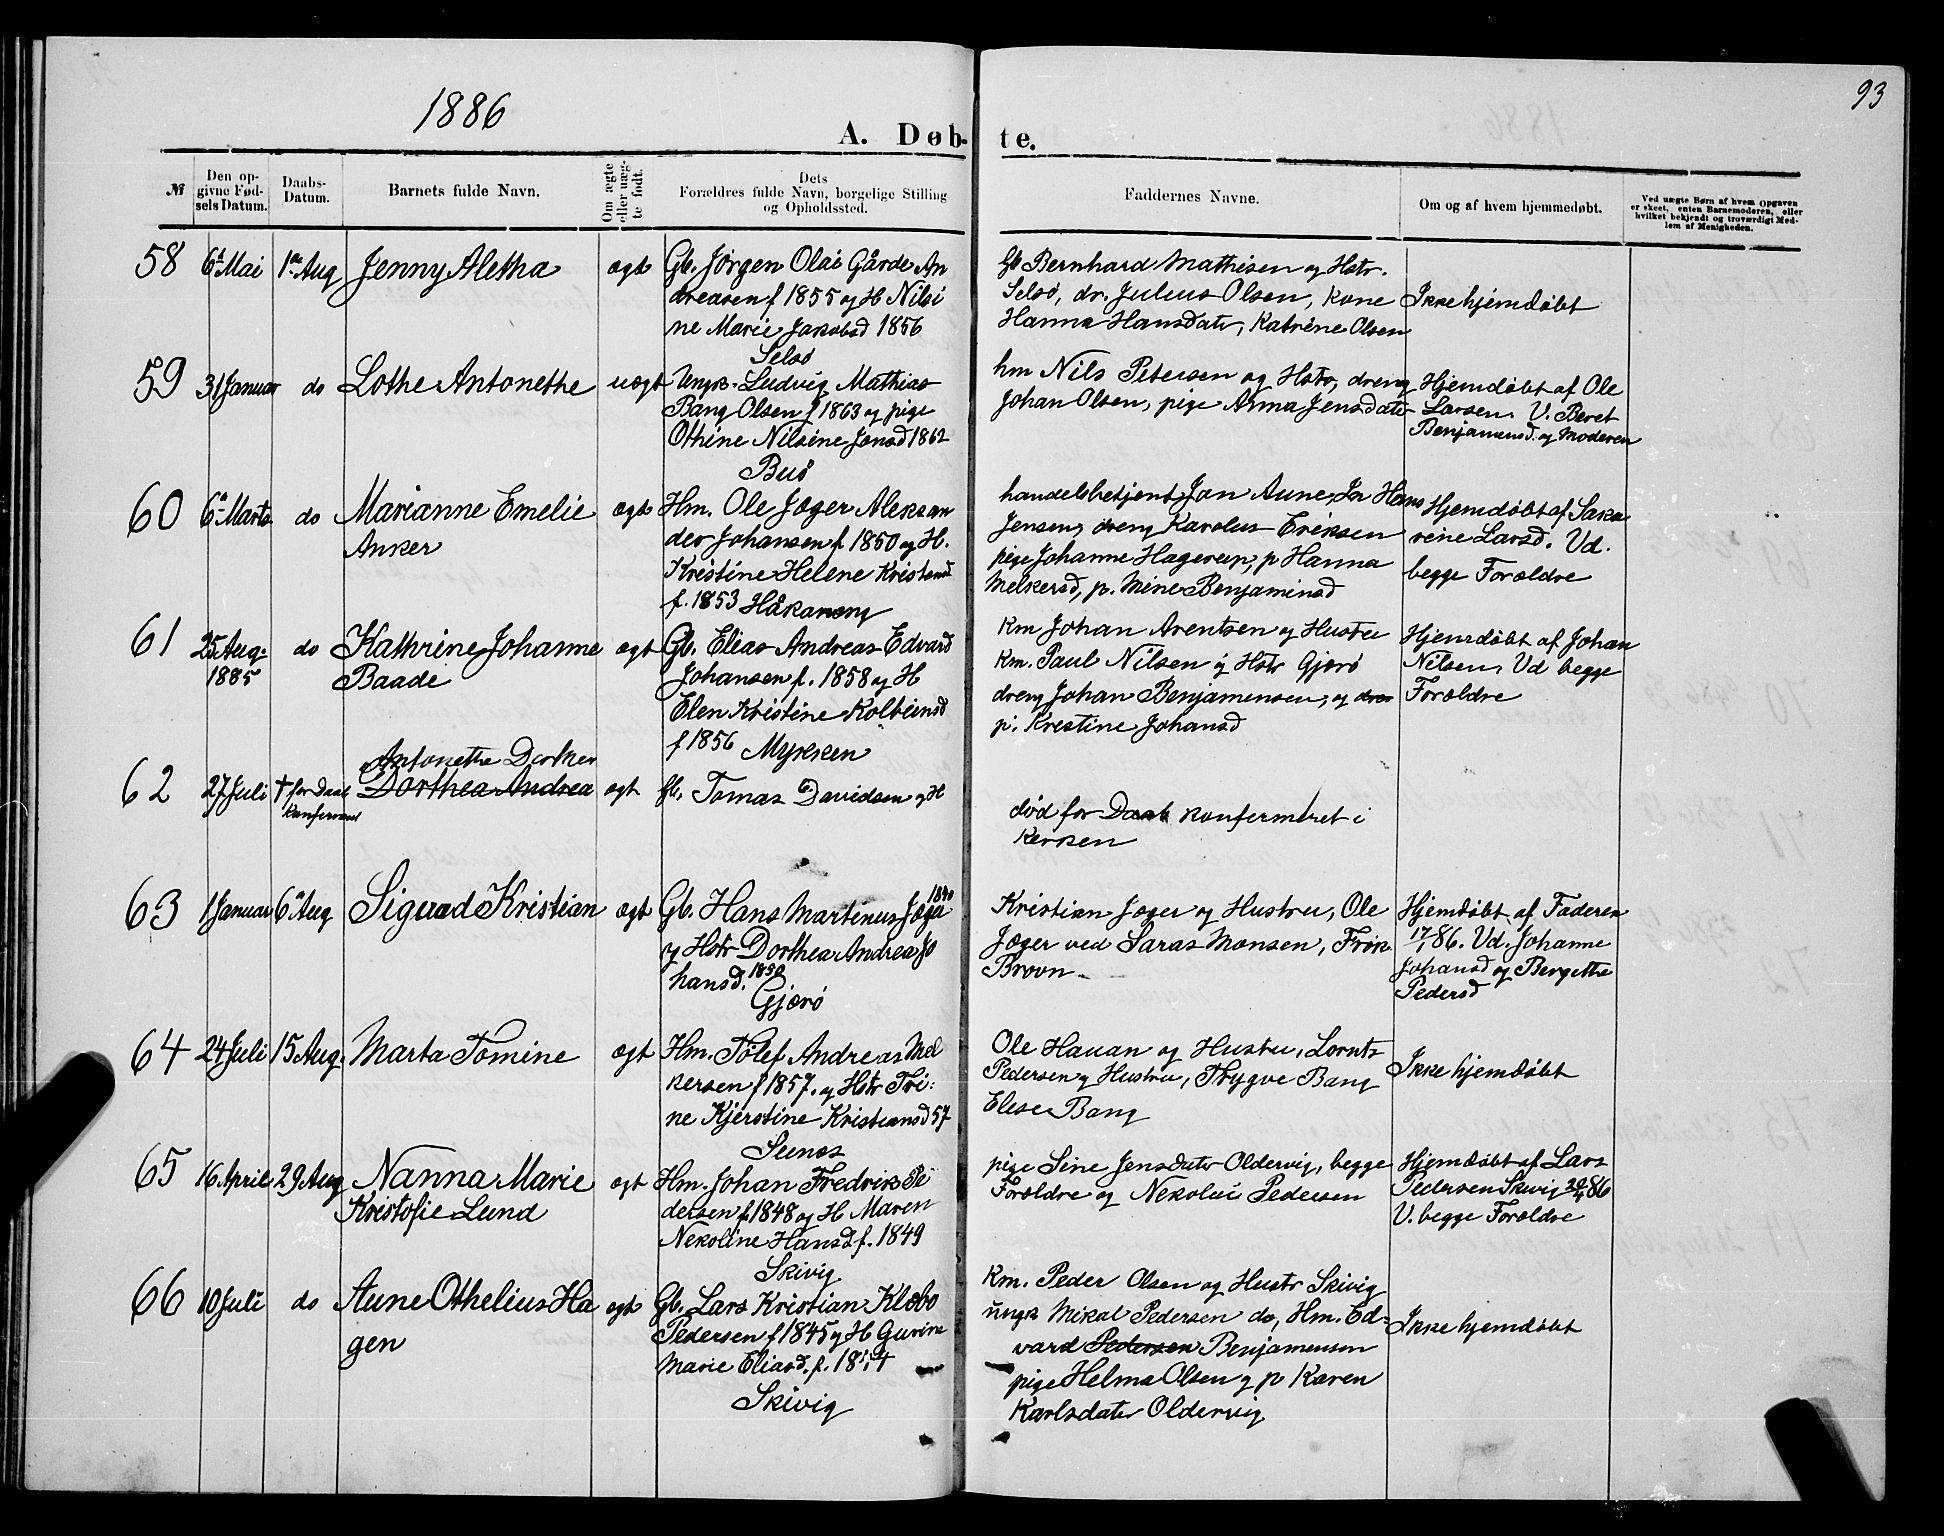 93
1886
A. Døbte.
№
Den op-
givne Fød-
sels Datum.
Daabs-
Datum.
Barnets fulde Navn.
Om ægte
eller uæg-
te født.
Dets
Forældres fulde Navn, borgelige Stilling
og Opholdssted.
Faddernes Navne.
Om og af hvem hjemmedøbt.
Ved uægte Børn af hvem Opgaven
er skeet, enten Barnemoderen, eller
hvilket bekjendt og troværdigt Med-
lem af Menigheden.
58 6te Mai 1ste Aug Jenny Aletha ægt
Gb. Jørgen Olai Gårde An
dreasen f 1855 og H Nilsi
ne Marie Jakobsd 1856
Selsø
Gb Bernhard Mathisen og Hstr.
Selsø, dr. Julius Olsen, Kone
Hanna Hansdatr, Katrine Olsen
Ikke hjemdøbt
59 31 Januar do Lothe Antonethe uægt
Ungk. Ludvig Mathias
Bang Olsen f 1863 og pige
Othine Nilsine Jonsd 1862
Buø
hm Nils Petersen og Hstr, dreng
Johan Olsen, pige Anna Jensdatr
Hjemdøbt af Ole
Larsen. V. Beret
Benjaminsd. og Moderen
60 6te Marts do Marianne Emelie
Anker
ægt
Hm. Ole Jæger Aleksan
der Johansen f 1850 og H.
Kristine Helene Kristensd
f. 1853 Håkanong
handelsbetjent Jon Aune, Lr Hans
Jensen, dreng Karolus Eriksen
pige Johanne Hagerup, p Hanna
Melkersd, p. Mine Benjaminsd
Hjemdøbt af Saka
rine Larsd. Vd.
begge Forældre
61 25 Aug.
1885
do Kathrine Johanne
Baade
ægt
Gb. Elias Andreas Edvard
Johansen f. 1858 og H
Elen Kristine Kolbeinsd
f 1856 Mykken
Km Johan Arentsen og Hustru
Km. Paul Nilsen og Hstr Gjærø
dreng Johan Benjaminsen, og dren
pi. Kristine Johansd
Hjemdøbt af Johan
Nilsen, Vd begge
Forældre
62 27 Juli † før Daab
konfermert
Antonethe Dorthea
Dorthea Andrea
ægt
Gb. Tomas Davidsen og H
død før Daab konfermeret i
Kerken
63 1 Januar 6te Aug Sigurd Kristian ægt
Gb. Hans Martenus Jæger 1840
og Hstr Dorthea Andrea Jo
hansd. 1850
Gjærø
Kristian Jæger og Hustru, Ole
Jæger ved Saras Monsen, Frøk
Brovn
Hjemdøbt af Faderen
17/1 86. Vd. Johanne
Johansd og Bergethe
Pedersd
64 24 Juli 15 Aug. Marta Tomine ægt
Hm. Tølef Andreas Mel
kersen f 1857. og Hstr Tri:
ne Kjerstine Kristiansd 57
Sunes
Ole Hauan og Hustru, Lornts
Pedersen og Hustru, Thygve Bang
Elise Bang
Ikke hjemdøbt
65 16 April 29 Aug Nanna Marie
Kristofie Lund
ægt
Hm. Johan Fredrik Pe
dersen f 1848 og H Maren
Nekoline Hansd f. 1849
Skivig
pige Sine Jensdatr Oldervig, begge
Forældre og Nekolai Pedersen
Hjemdøbt af Lars
Pedersen Skivig 20/4 86
V. begge Forældre
66 10 Juli do Aune Othelius Ha
gen
ægt
Gb. Lars Kristian Klæbo
Pedersen f 1845 og H Gurine
Marie Eliasd. f. 1854
Skivig
Km. Peder Olsen og Hustr Skivig
ungk Mikal Pedersen do, Hm. Ed-
vard Pedersen Benjaminsen
pige Helma Olsen og p Karen
Karlsdatr Oldervig
Ikke hjemdøbt